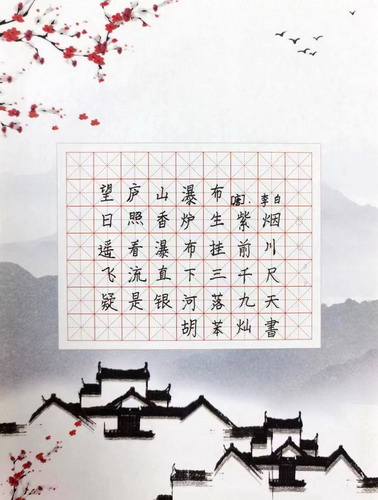 望庐山瀑布 唐·李白
日照香炉生紫烟
遥看瀑布挂前川
飞流直下三千尺
疑是银河落九天
胡苯灿書